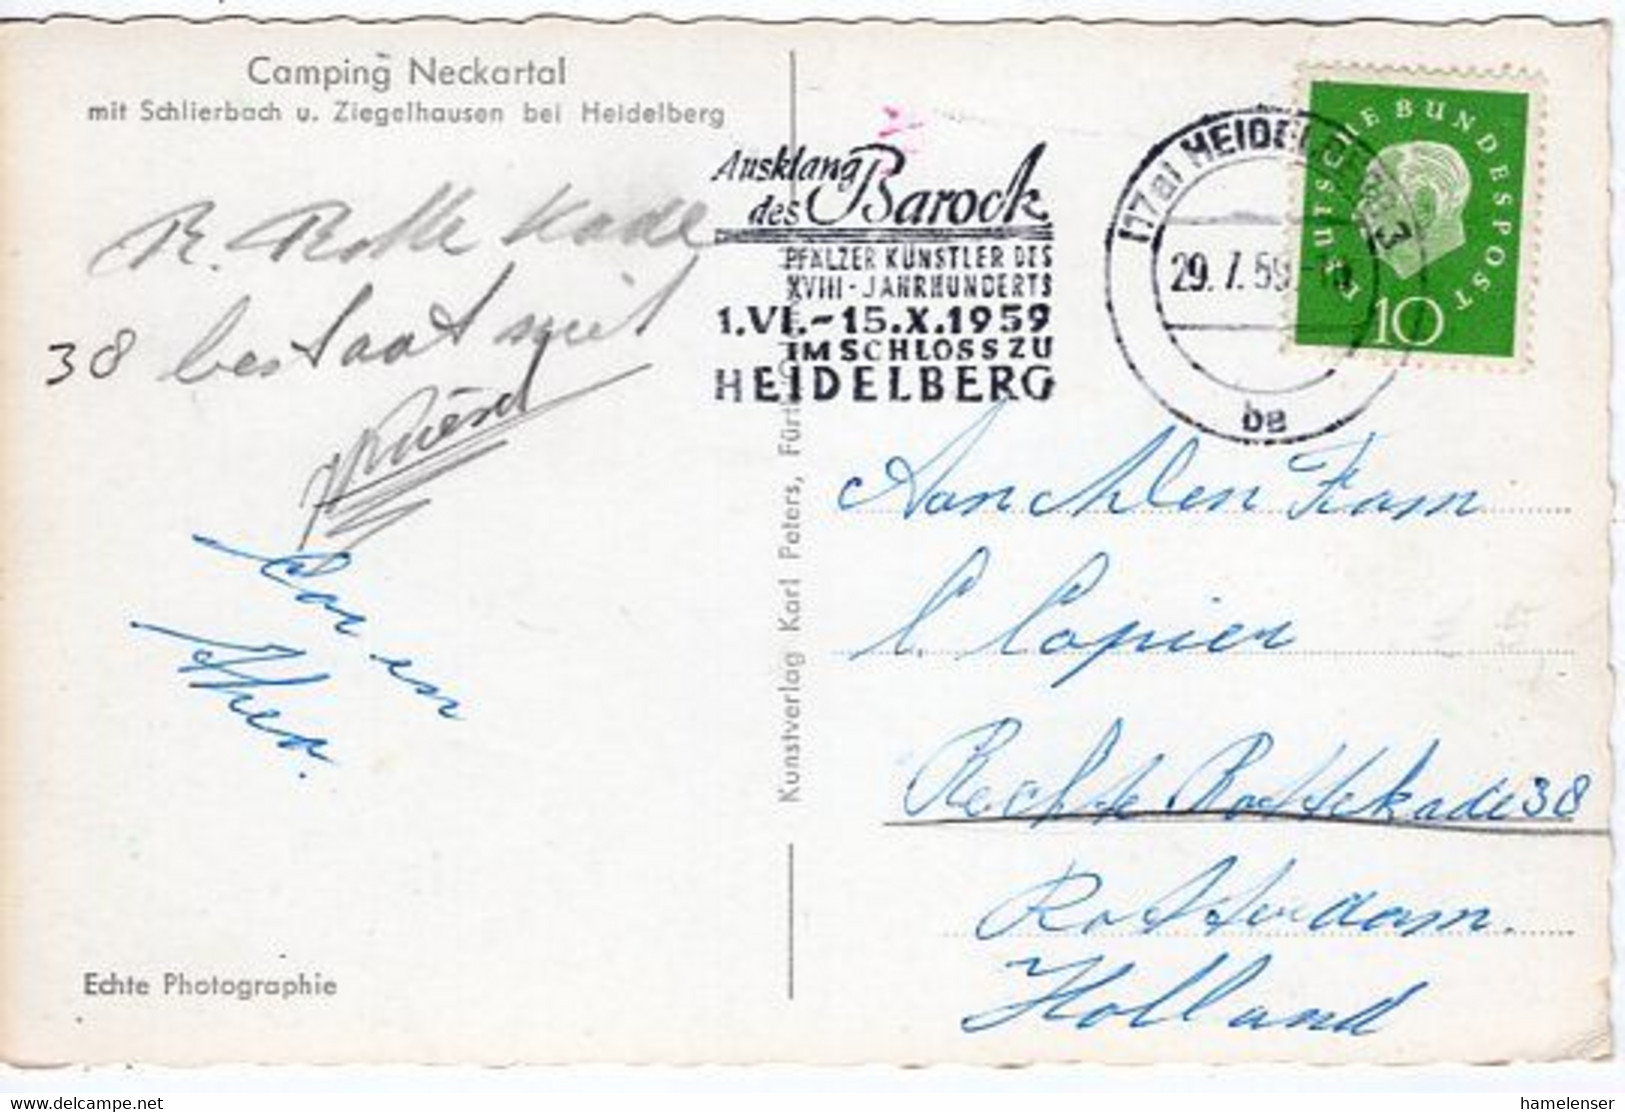 Camping Neckartal
mit Schlierbach u. Ziegelhausen bei Heidelberg
R. Rotte kade
38 bestaat niet
Cor en
Thea.
Echte Photographie
Kunstverlag Karl Peters, Fürth
Ausklang
des Barock
PFÄLZER KÜNSTLER DES
XVIII-JAHRHUNDERTS
1.VI.-15.X.1959
IM SCHLOSS ZU
HEIDELBERG
(17a) HEIDELBERG 3
29.7.59
ba
DEUTSCHE BUNDESPOST
10
Aan
Fam
C. Copier
Rechte Rottekade 38
Rotterdam.
Holland
delcampe.net
hamelenser